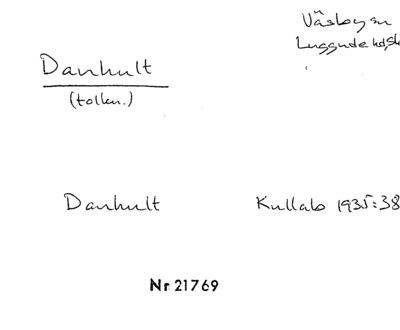 Väsby sn
Luggude hd, Sk
Danhult
(tolkn.)
Danhult Kullab 1935:38
Nr 21769